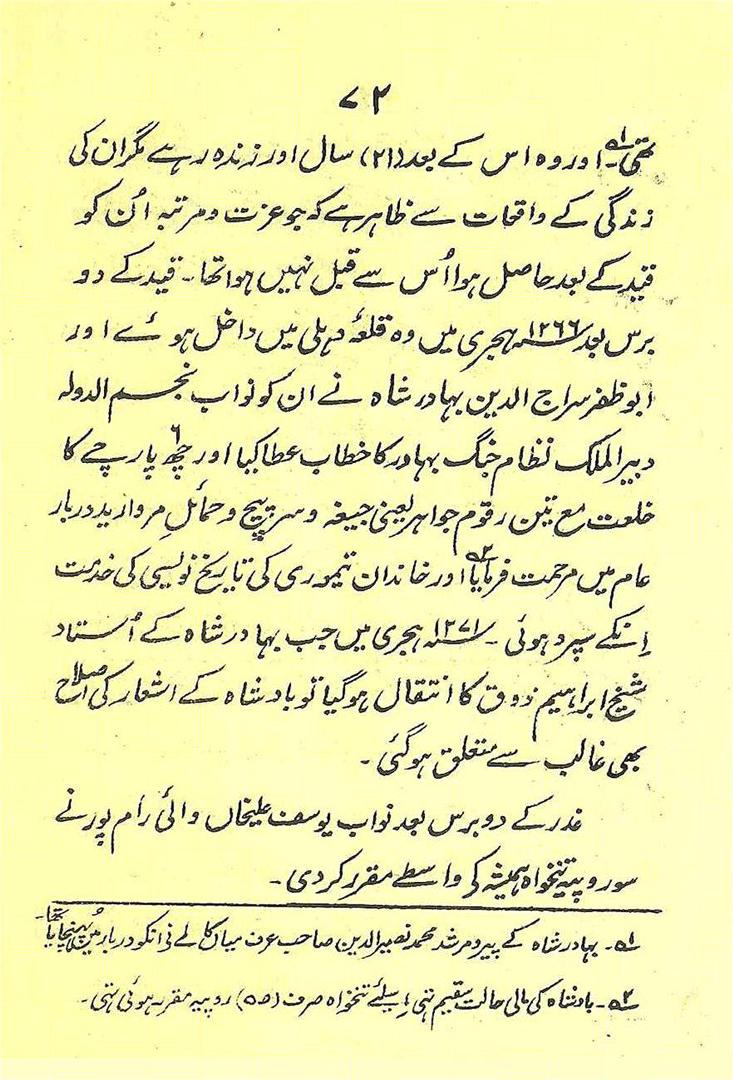 ۷۲
تھی۔ؔ۱ اور وہ اس کے بعد (۲۱) سال اور زندہ رہے مگر ان کی
زندگی کے واقعات سے ظاہر ہے کہ جو عزت و مرتبہ اُن کو
قید کے بعد حاصل ہوا اُس سے قبل نہیں ہوا تھا۔ قید کے دو
برس بعد ۱۲۶۶؁ ہجری میں وہ قلعۂ دہلی میں داخل ہوئے اور
ابو ظفر سراج الدین بہادر شاہ نے ان کو نواب نجم الدولہ
دبیر الملک نظام جنگ بہادر کا خطاب عطا کیا اور چھ۶ پارچے کا
خلعت مع تین رقوم جواہر یعنی جیغہ و سرپیچ و حمائلِ مروارید دربار
عام میں مرحمت فرمایا۲؎ اور خاندان تیموری کی تاریخ نویسی کی خدمت
اِنکے سپرد ہوئی۔ ۱۲۷۱؁ ہجری میں جب بہادر شاہ کے اُستاد
شیخ ابراہیم ذوق کا انتقال ہوگیا تو بادشاہ کے اشعار کی اصلاح
بھی غالب سے متعلق ہوگئی۔
غدر کے دو برس بعد نواب یوسف علیخاں والئی رام پور نے
سو روپیہ تنخواہ ہمیشہ کی واسطے مقرر کر دی۔
۱؎۔ بہادر شاہ کے پیر و مرشد محمد نصیر الدین صاحب عرف میاں کالے نی انکو دربار میں پہنچایا تھا۔
۲؎۔ بادشاہ کی مالی حالت سقیم تہی اِسلئے تنخواہ صرف (۵۰) روپیہ مقرر ہوئی تہی۔